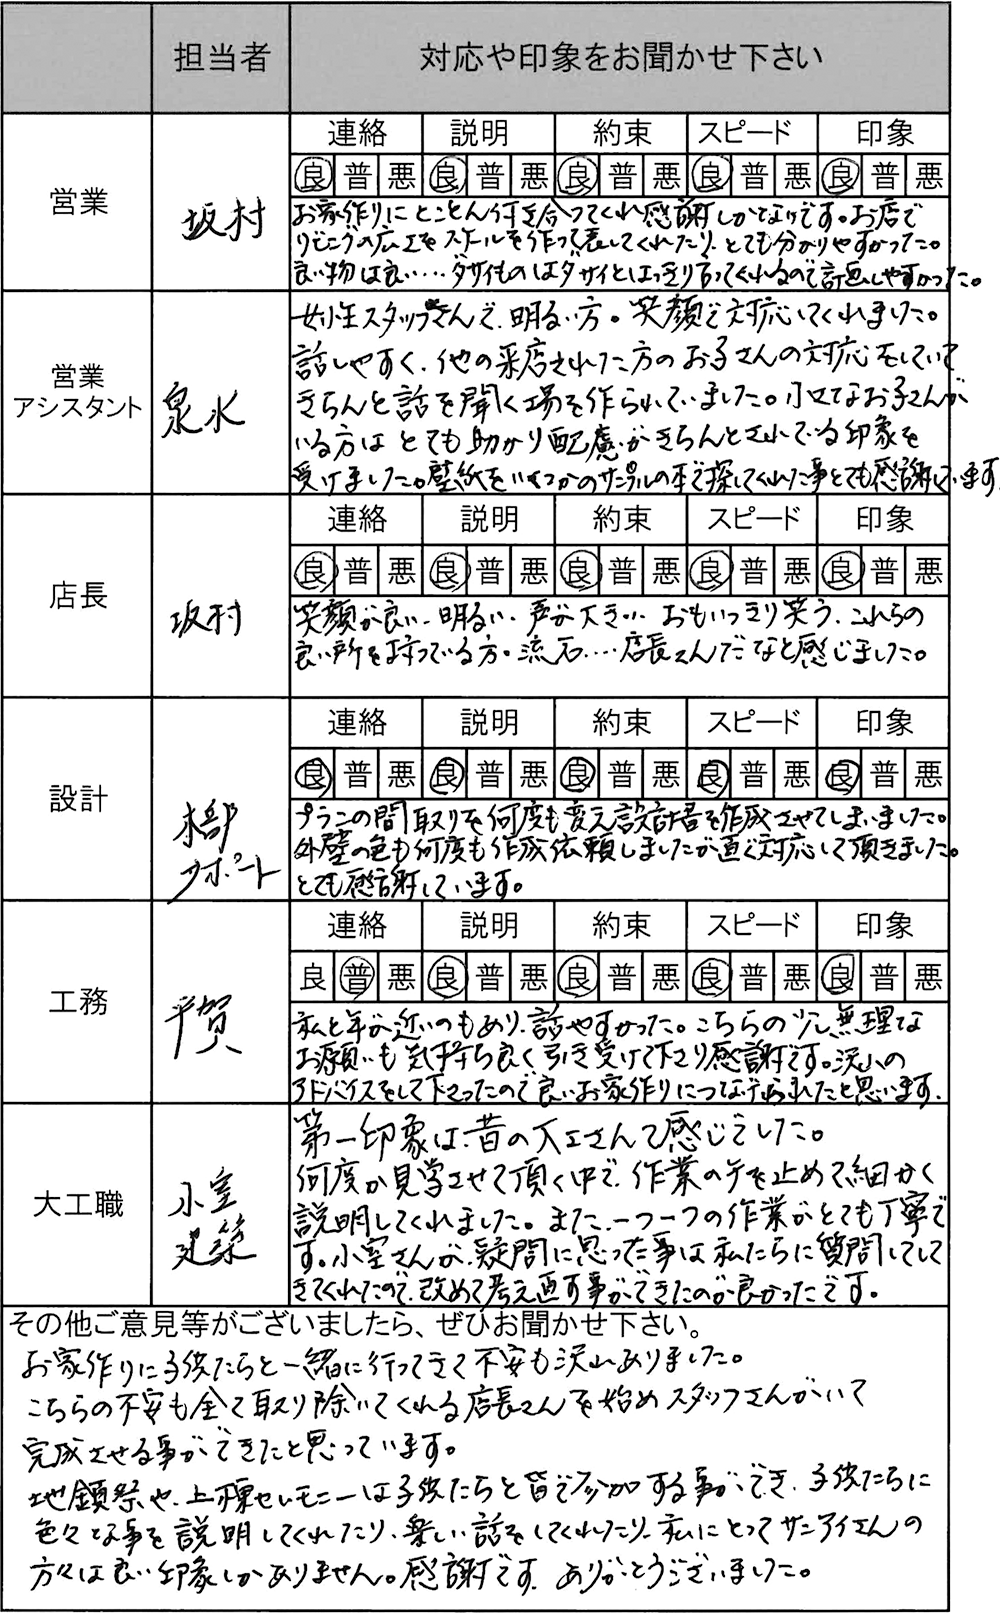 担当者 対応や印象をお聞かせ下さい
営業 坂村
連絡 説明 約束 スピード 印象
良 普 悪 良 普 悪 良 普 悪 良 普 悪 良 普 悪
お家作りにとことん付き合ってくれ感謝しかないです。お店で
りびんぐの広さをスケールを作って表してくれたり、とても分かりやすかった。
良い物は良い….ダサイものはダサイとはっきり言ってくれるので計画しやすかった。
営業
アシスタント 泉水
女性スタッフさんで、明るい方。笑顔で対応してくれました。
話しやすく、他の来店された方のお子さんの対応をしていて
きちんと話を聞く場を作られていました。小さなお子さんが
いる方はとても助かり配慮がきちんとされている印象を
受けました。壁紙をいくつかのサンプルの本で探してくれた事とても感謝しています。
店長 坂村
連絡 説明 約束 スピード 印象
良 普 悪 良 普 悪 良 普 悪 良 普 悪 良 普 悪
笑顔が良い、明るい、声が大きい、おもいっきり笑う、これらの
良い所を持っている方。流石….店長さんだなと感じました。
設計 木部
サポート
連絡 説明 約束 スピード 印象
良 普 悪 良 普 悪 良 普 悪 良 普 悪 良 普 悪
プランの間取りを何度も変え設計書を作成させてしまいました。
外壁の色も何度も作成依頼しましたが直ぐ対応して頂きました。
とても感謝しています。
工務 平賀
連絡 説明 約束 スピード 印象
良 普 悪 良 普 悪 良 普 悪 良 普 悪 良 普 悪
私と年が近いのもあり、話やすかった。こちらの少し無理な
お願いも気持ち良く引き受けて下さり感謝です。沢山の
アドバイスをして下さったので良いお家作りにつなげられたと思います。
大工職 小室
建築
第一印象は、昔の大工さんて感じでした。
何度か見学させて頂く中で、作業の手を止めて細かく
説明してくれました。また、一つ一つの作業がとても丁寧で
す。小室さんが、疑問に思った事は私たちに質問してして
きてくれたので、改めて考え直す事ができたのが良かったです。
その他ご意見等がございましたら、ぜひお聞かせ下さい。
お家作りに子供たちと一緒に行ってきて不安も沢山ありました。
こちらの不安も全て取り除いてくれる店長さんを始めスタッフさんがいて
完成させる事ができたと思っています。
地鎮祭や、上棟セレモニーは子供たちと皆で参加する事ができ、子供たちに
色々な事を説明してくれたり、楽しい話をしてくれたり、私にとってサンアイさんの
方々は良い印象しかありません。感謝です。ありがとうございました。